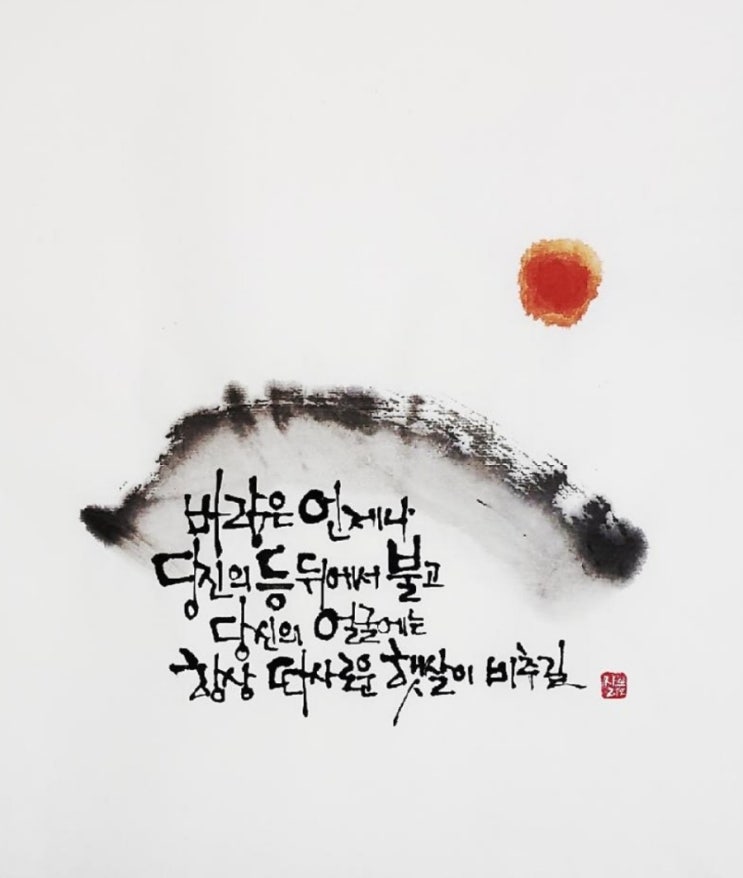 바람은 언제나
당신의 등 뒤에서 불고
당신의 얼굴에는
항상 따사로운 햇살이 비추길